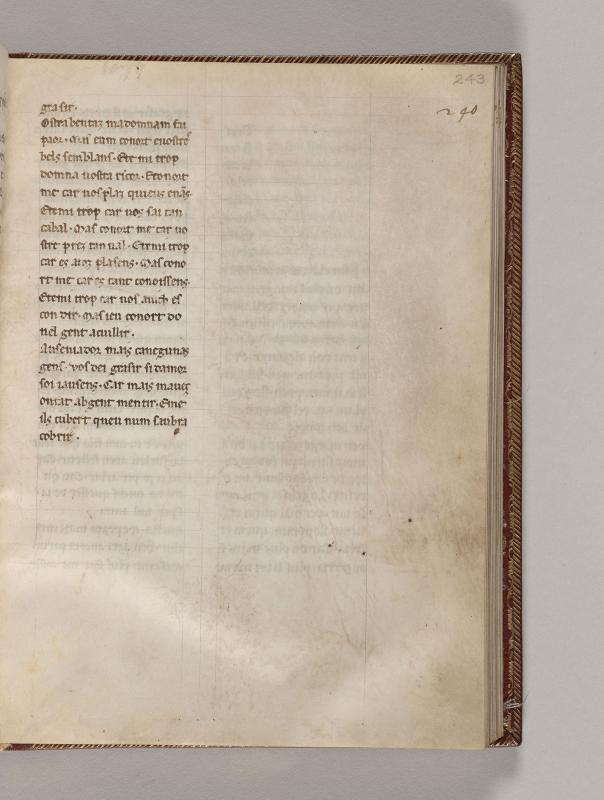 243
240
grasir.
Ostra beutaz madomnam fu
paor. Mas eum conort euostre
bels semblans. Ete mi trop
domna uostra ricor. Econort
me car uos plaz quieus enās.
Etemi trop car uos sai tan
cabal. Mas conort me car uo
stre prez tan ual. Etemi trop
car es atoz plasens. Mas cono
rt me car es tant conoissens.
Etemi trop car uos auch es
con dir. Mas ieu conort do
nel gent acullir.
Auseniador mais canegunas
gens. vos dei grasir si damor
soi iausens. Car mais
onrat ab gent mentir. Eme
ils cubert queu num saubra
cobrir.